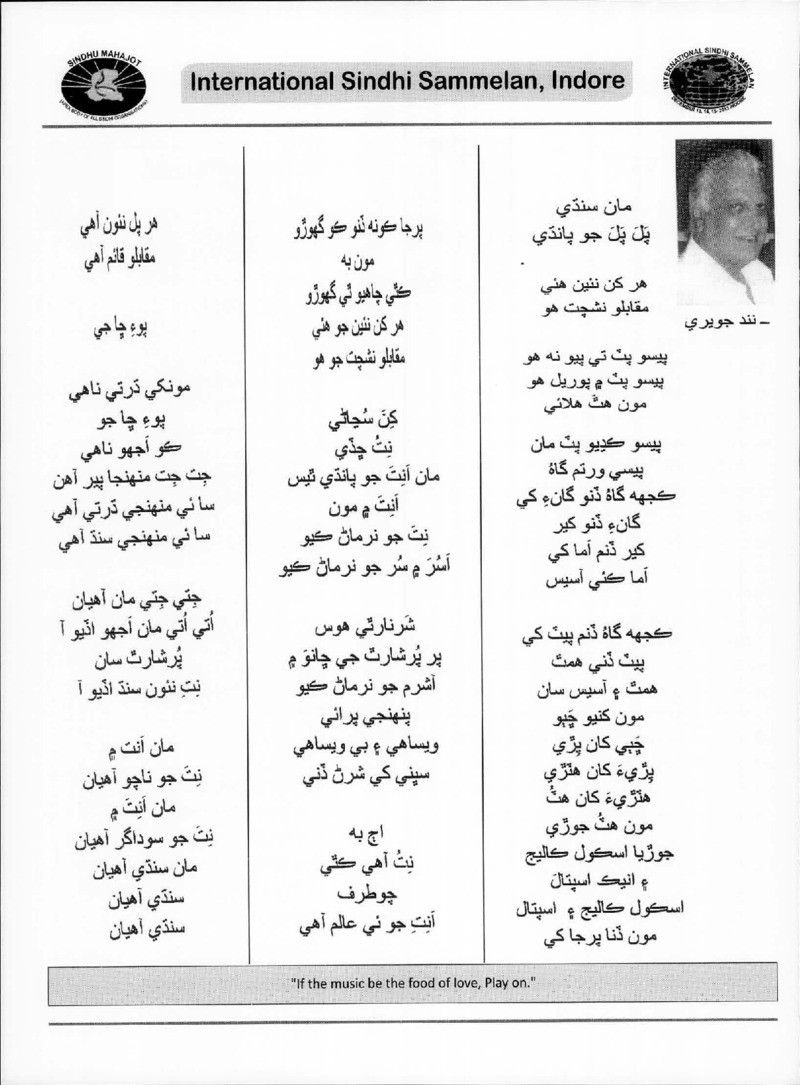 SINDHU MAHAJOT
International Sindhi Sammelan, Indore
INTERNATIONAL SINDHI SAMMELAN
ـ نند جويري
مان سنڌي
پَلَ پَلَ جو پانڌي
هر کن نئين هئي
مقابلو نشچت هو
پيسو پٽ تي پيو نه هو
پيسو پٽ ۾ پوريل هو
مون هٿ هلائي
پيسو ڪڍيو پٽ مان
پيسي ورتم گاهُ
ڪجهه گاهُ ڏنو گانءِ کي
گانءِ ڏنو کير
کير ڏنم اَما کي
اَما ڪئي آسيس
ڪجهه گاهُ ڏنم پيٽ کي
پيٽ ڏني همٿ
همٿ ۽ آسيس سان
مون کنيو ڇٻو
ڇٻي کان پِڙي
پِڙيءَ کان هٽڙي
هٽڙيءَ کان هٽُ
مون هٽُ جوڙي
جوڙيا اسڪول ڪاليج
۽ انيڪ اسپتال
اسڪول ڪاليج ۽ اسپتال
مون ڏنا پرجا کي
پرجا ڪونه ڏنو ڪو گهوڙو
مون به
ڪٿي چاهيو ٿي گهوڙو
هر کن نئين جو هئي
مقابلو نشچت جو هو
کِنَ سُڃاڻي
نِتُ ڇڏي
مان اَنِتَ جو پانڌي ٿيس
اَنِتَ ۾ مون
نِتَ جو نرماڻ ڪيو
اَسُرَ ۾ سُر جو نرماڻ ڪيو
شَرنارٿي هوس
پر پُرشارٿ جي ڇانوَ ۾
آشرم جو نرماڻ ڪيو
پنهنجي پرائي
ويساهي ۽ بي ويساهي
سڀني کي شرڻ ڏني
اڄ به
نِتُ آهي ڪٿي
چوطرف
اَنِتِ جو ئي عالم آهي
هر پل نئون آهي
مقابلو قائم آهي
پوءِ ڇا جي
مونکي ڌرتي ناهي
پوءِ ڇا جو
ڪو اَجهو ناهي
جِت جِت منهنجا پير آهن
سا ئي منهنجي ڌرتي آهي
سا ئي منهنجي سنڌ آهي
جِتي جِتي مان آهيان
اُتي اُتي مان اَجهو اڏيو آ
پُرشارٿ سان
نِتِ نئون سنڌ اڏيو آ
مان اَنت ۾
نِتَ جو ناچو آهيان
مان اَنِتَ ۾
نِتَ جو سوداگر آهيان
مان سنڌي آهيان
سنڌي آهيان
سنڌي آهيان
"If the music be the food of love, Play on."